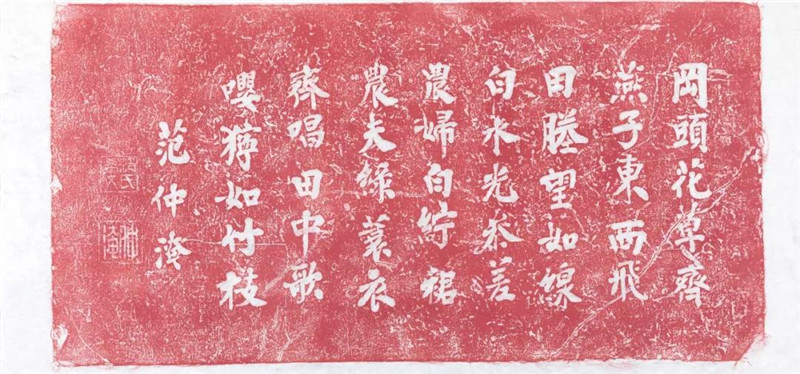 岡頭花草齊
燕子東西飛
田塍望如線
白水光参差
農婦白紵裙
農夫綠蓑衣
齊唱田中歌
嚶獰如竹枝
范仲淹